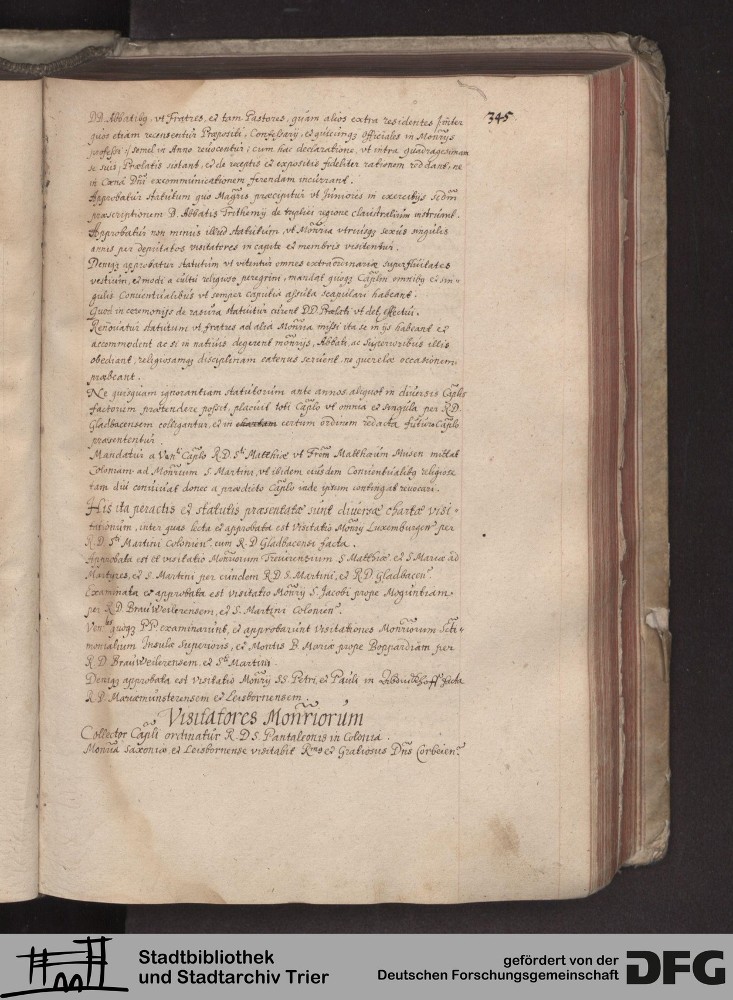 345
DD. Abbatibq, vt Fratres, et tam Pastores, quam alios extra residentes Inter
quos etiam recensentur Præpositi, Confessarij, et quicunqz officiales in Monrijs
professi semel in Anno reuocentur; cum hac declaratione, vt intra quadragesimam
se suis Prælatis sistant, et de receptis et expositis fideliter rationem reddant, ne
in Cæna Dni excommunicationem ferendam incurrant.
Approbatur statutum quo Magris præcipitur vt Juniores in exercitijs scdm
præscriptionem D. Abbatis Trithemij de triplici regione claustralium instruant.
Approbatur non minus illud statutum, vt Monria vtriusqz sexus singulis
annis per deputatos visitatores in capite et membris visitentur.
Deniqz approbatur statutum vt vitentur omnes extraordinariæ superfluitates
vestium, et modi a cultu religioso peregrini, mandat quoqz Caplm omnibq et sin-
gulis Conuentualibus vt semper caputia assuta scapulari habeant.
Quod in ceremonijs de rasura statuitur curent DD. Prælati vt det effectui.
Renouatur statutum vt fratres ad alia Monria missi ita se in ijs habeant et
accommodent ac si in natiuis degerent monrijs, Abbati, ac Superioribus illis
obediant, religiosamqz disciplinam eatenus seruent ne querelæ occasionem
præbeant.
Ne quisquam ignorantiam statutorum ante annos aliquot in diuersis Caplis
factorum prætendere possit, placuit toti Caplo vt omnia et singula per R.D.
Gladbacensem colligantur, et in certum ordinem redacta futuro Caplo
præsententur.
Mandatur a Venli Caplo R.D. Sti Matthiæ vt Frem Matthæum Musen mittat
Coloniam ad Monrium S. Martini, vt ibidem eiusdem Conuentualibq religiose
tam diu conuiuat donec a prædicto Caplo inde ipsum contingat reuocari.
His ita peractis et statutis præsentatæ sunt diuersæ chartæ visi-
tationum, inter quas lecta et approbata est visitatio Monrij Luxemburgen. per
R.D. Sti Martini Colonien. cum R.D. Gladbacensi facta.
Approbata est et visitatio Monriorum Treuirensium S Matthiæ et S Mariæ ad
Martyres, et S. Martini per eundem R.D. S. Martini, et R.D Gladbacen.
Examinata et approbata est visitatio Monrij S. Jacobi prope Moguntiam
per R.D. Brauweilerensem, et S. Martini Colonien.
Ven. quoqz PP. examinarunt, et approbarunt visitationes Monriorum Scti-
monialium Insulæ Superioris, et Montis B. Mariæ prope Boppardiam per
R.D. Brauweilerensem, et Sti Martini.
Deniqz approbata est Visitatio Monrij SS. Petri, et Pauli in facta
R.D. Mariæmunsterensem et Leisbornensem.
Visitatores Monriorum
Collector Capli ordinatur R. D S. Pantaleonis in Colonia.
Monria Saxoniæ et Leisbornense visitabit Rmus et Gratiosus Dns Corbeien.
Stadtbibliothek
und Stadtarchiv Trier
gefördert von der
Deutschen Forschungsgemeinschaft
DFG